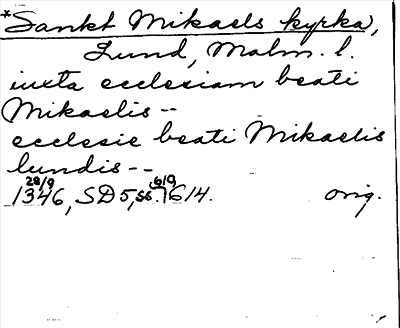 *Sankt Mikaels kyrka,
Lund, Malm. l.
iuxta ecclesiam beati
Mikaelis--
ecclesie beati Mikaelis
lundis--
28/9
1346, SD5, ss. 614. orig.